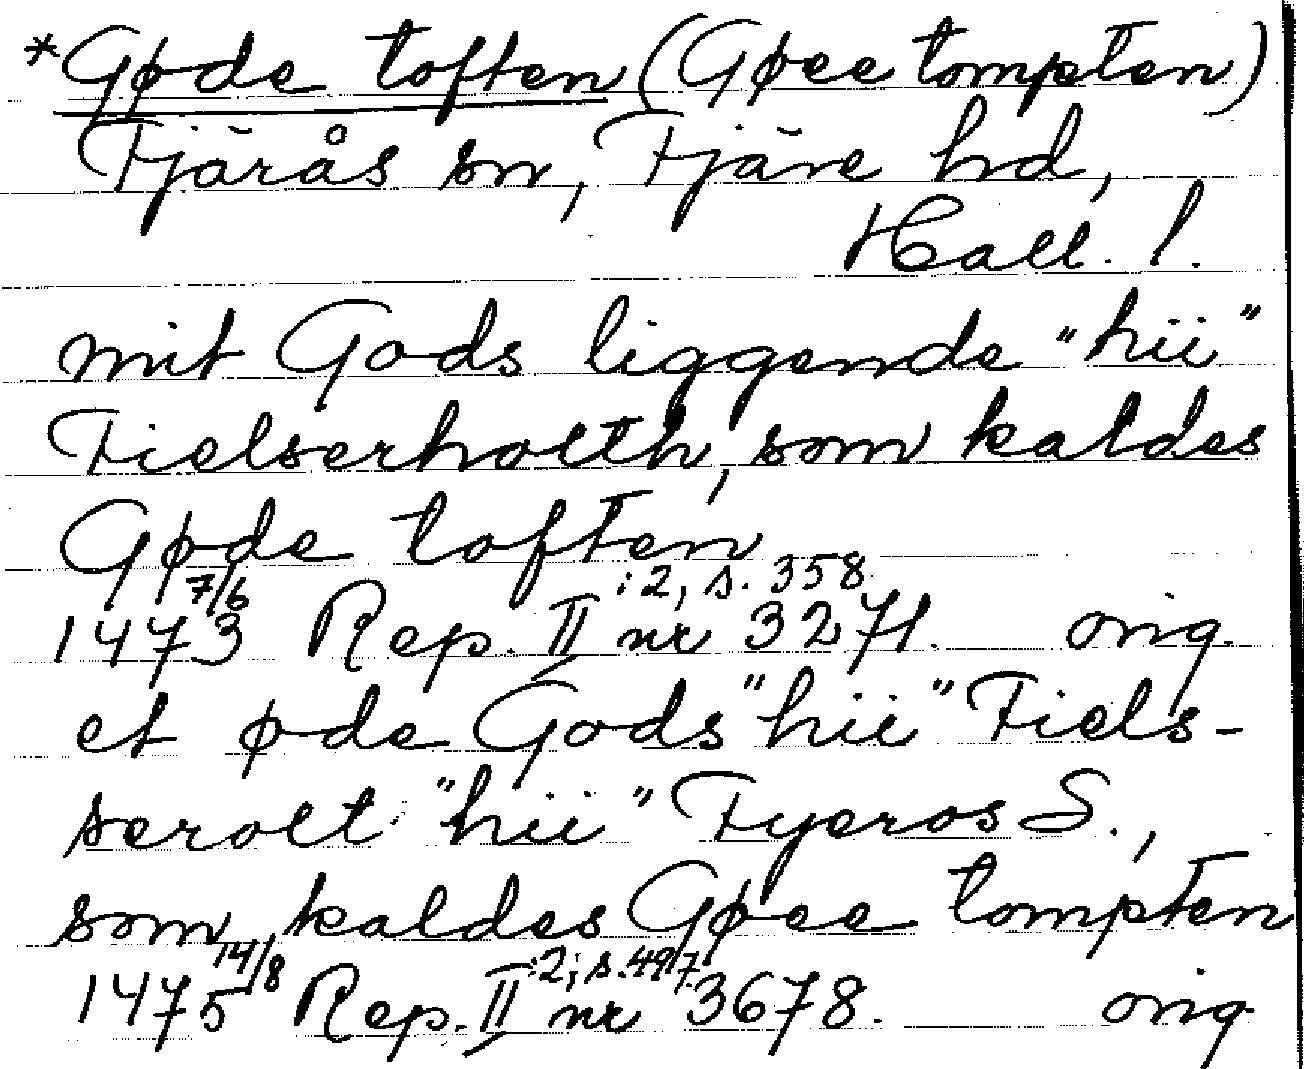 *Gøde toften (Gøee tompten)
Fjärås sn, Fjäre hd,
Hall. l.
mit Gods liggende "hii"
Fielserholth, som kaldes
Gøde toften
1473 7/6 Rep. II:2, s. 358 nr 3271. orig.
et øde Gods "hii" Fiels-
serolt "hii" Fyeros S.,
som kaldes Gøee tompten
1475 14/8 Rep. II:2; s. 497. nr 3678. orig